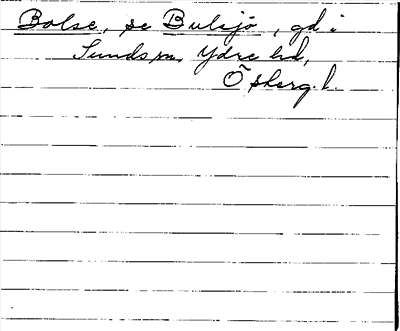 Bolse, se Bulsjö, gd i
Sunds sn, Ydre hd,
Ö skerg. l.